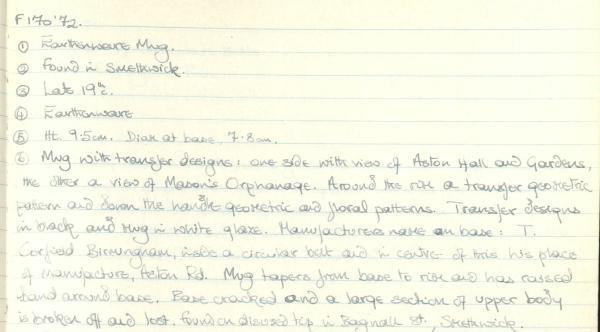 F170'72.
① Earthenware Mug.
② Found in Smethwick.
③ Late 19th c.
④ Earthenware
⑤ Ht. 9.5cm. Diam at base, 7.8cm.
⑥ Mug with transfer designs: one side with view of Aston Hall and Gardens,
the other a view of Mason's Orphanage. Around the rim a transfer geometric
pattern and down the handle geometric and floral patterns. Transfer designs
in black and mug in white glaze. Manufacturers name on base: T.
Corfield Birmingham, inside a circular belt and in centre of this his place
of manufacture, Aston Rd. Mug tapers from base to rim and has raised
band around base. Base cracked and a large section of upper body
is broken off and lost. Found on disused tip in Bagnall St, Smethwick.